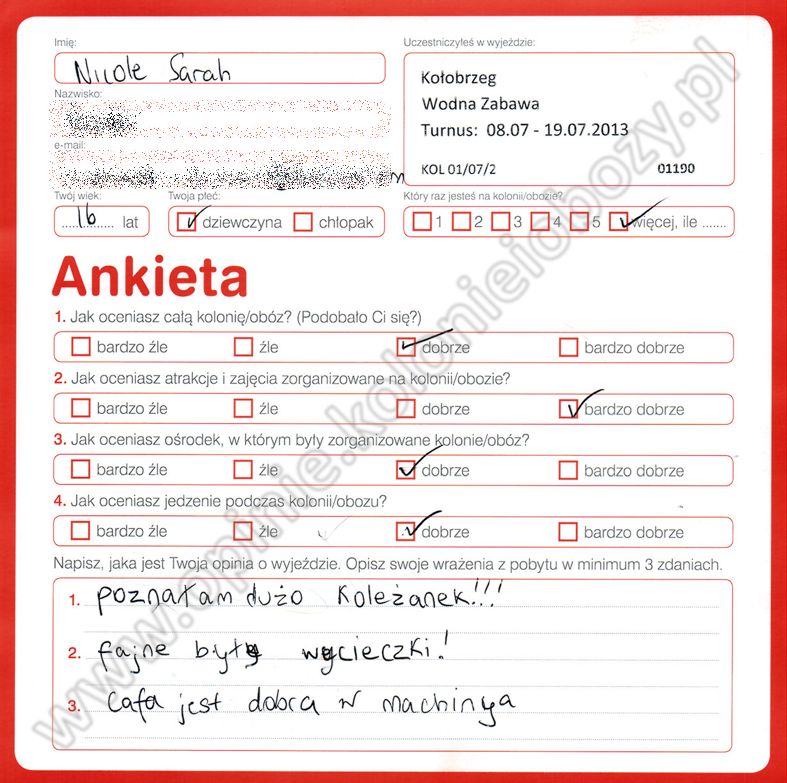 Imię:
Uczestniczyłeś w wyjeździe:
Nicole Sarah
Kołobrzeg
Wodna Zabawa
Turnus: 08.07 - 19.07.2013
KOL 01/07/2 01190
Nazwisko:
e-mail:
m
Twój wiek:
Twoja płeć:
Który raz jesteś na kolonii/obozie?
16 lat
dziewczyna chłopak
1 2 3 4 5 więcej, ile .......
Ankieta
1. Jak oceniasz całą kolonię/obóz? (Podobało Ci się?)
bardzo źle źle dobrze bardzo dobrze
2. Jak oceniasz atrakcje i zajęcia zorganizowane na kolonii/obozie?
bardzo źle źle dobrze bardzo dobrze
3. Jak oceniasz ośrodek, w którym były zorganizowane kolonie/obóz?
bardzo źle źle dobrze bardzo dobrze
4. Jak oceniasz jedzenie podczas kolonii/obozu?
bardzo źle źle dobrze bardzo dobrze
Napisz, jaka jest Twoja opinia o wyjeździe. Opisz swoje wrażenia z pobytu w minimum 3 zdaniach.
1. poznałam dużo koleżanek!!!
2. fajne były wycieczki!
3. cafa jest dobra w machinya
www.opinie.kolonieiobozy.pl